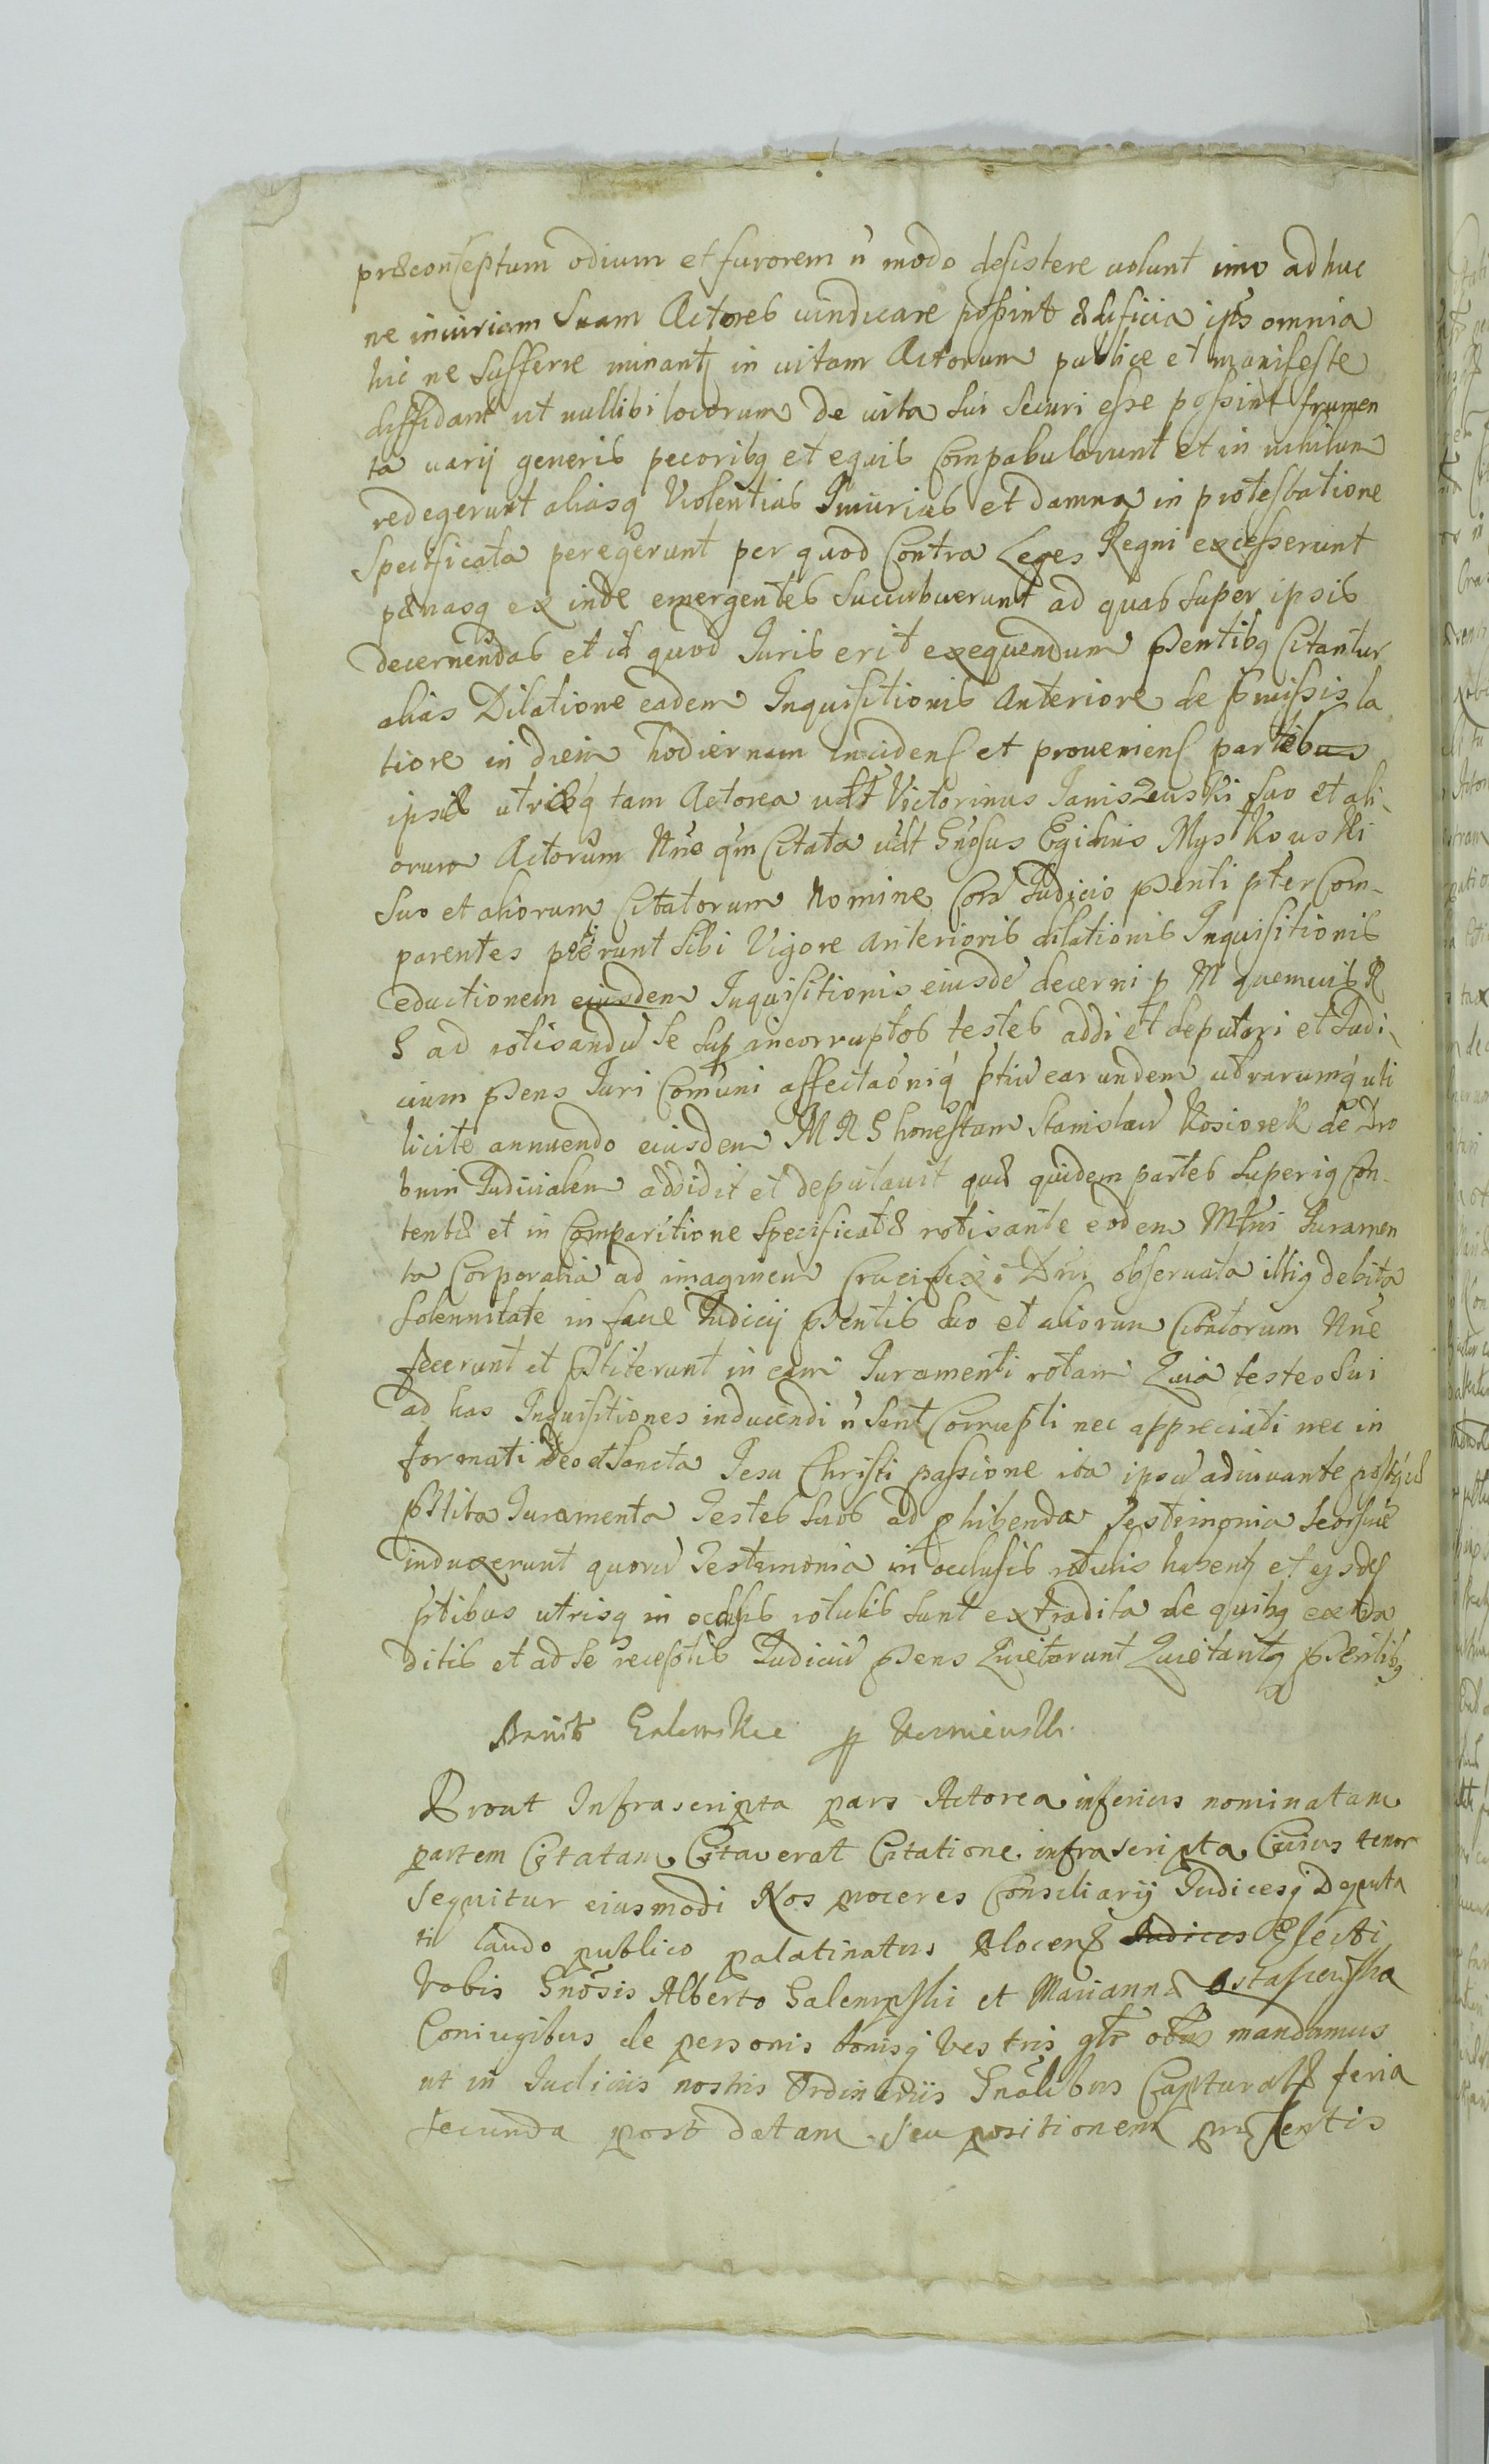 præconceptum odium et furorem ń modo desistere volunt imo adhuc
ne iniuriam suam Actores vindicare possint ædificia ips omnia
hic ne sufferre minantꝫ in vitam Actorum publice et manifeste
diffidant ut nullibi locorum de vita sui securi esse possint frumen
ta varij generis pecoribꝗ et equis Compabularunt et in nihilum
redegerunt aliasꝗ Violentias Iniurias et damna in protestatione
Specificata peregerunt per quod Contra Leges Regni excesserunt
pænasꝗ ex inde emergentes Succubuerunt ad quas super ipsis
decernendas et id quod Iuris erit exequendum pñtibꝗ Citantur
alias Dilatione eadem Inquisitionis anteriore de pmissis la
tiore in diem hodiernam incidenſ et provenienſ partibus
ipsis utrisꝗ tam Actorea udt Victorinus Janiszewski suo et ali-
orum Actorum Nne qm Citata udt Gnosus Egidius Mystkowski
Suo et aliorum Citatorum Nomine Corā Iudicio pñti pter Com-
parentes petierunt sibi Vigore anterioris dilationis Inquisitionis
eductionem eiusdem Inquisitionis eiusdē decerni ꝑ M quemvis R
G ad rotisandū se sup incorruptos testes addi et deputari et Iudi-
cium psens Iuri Comuni affectaōniꝗ ptiū earundem utrarumꝗ uti
licite annuendo eiusdem M R G honestam Stanislaū Kosiorek de Dro
bnin Iudicialem addidit et deputavit quæ quidem partes superiꝗ Con-
tentæ et in Comparitione Specificatæ rotisante eodem Mtrni Iuramen
ta Corporalia ad imaginem Crucifixi Dni observata illiꝗ debita
Solennitate in facie Iudicij psentis suo et aliorum Citatorum Nne
fecerunt et pstiterunt in eam Iuramenti rotam Quia testes sui
ad has Inquisitiones inducendi ń sunt Corrupti nec appreciati nec in
formati Deo et Sancta Jesu Christi passione ita ipsū adiuvante
pstita Iuramenta Testes suos ad ꝑhibenda Testimonia seorsive
induxerunt quorū Testimonia in occlusis rotulis habentꝫ et
ptibus utrisꝗ in occlusis rotulis sunt extradita de quibꝗ extra
ditis et ad se receptis Iudiciū psens Quietarunt Quietantꝗ psentibꝗ
Galemskie
Prout Infrascripta pars Actorea inferius nominatam
partem Citatam Citaverat Citatione infrascripta Cuius tenor
sequitur eiusmodi Nos proceres Consiliarij Iudicesꝗ Deputa
ti laudo publico palatinatus Plocenſ Iudices Electi
Vobis Gnōsis Alberto Galempski et Mariannæ Ostaszewska
Coniugibus de personis bonisꝗ vestris gltr obus mandamus
ut in Iudiciis nostris Ordinariis Gnālibus Capturalꝫ feria
secunda post datam seu positionem præsentis